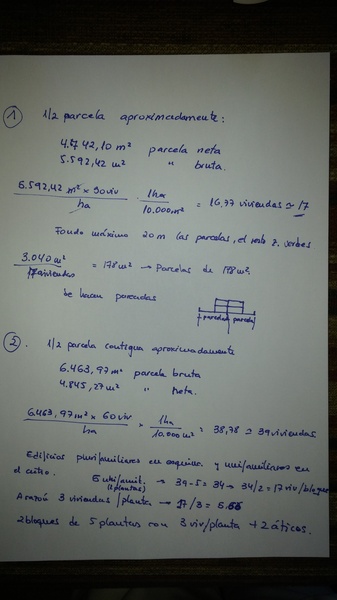 ① 1/2 parcela aproximadamente:
4.742,10 m² parcela neta
5.592,42 m² " bruta.
5.592,42 m² x 30 viv / ha · 1ha / 10.000m² = 16,77 viviendas ≃ 17
Fondo máximo 20 m las parcelas, el resto z. verdes
3.040 m² / 17 viviendas = 178 m² → Parcelas de 178 m².
Se hacen pareadas
parcela parcela
②. 1/2 parcela contigua aproximadamente
6.463,97 m² parcela bruta
4.845,27 m² " neta.
6.463,97 m² x 60 viv / ha x 1ha / 10.000 m² = 38,78 ≃ 39 viviendas
Edificios plurifamiliares en esquina y unifamiliares en
el centro.
5 unifamil. (2 plantas) → 39-5 = 34 → 34/2 = 17 viv/bloque
A razón 3 viviendas/planta → 17/3 = 5.66
2 bloques de 5 plantas con 3 viv/planta + 2 áticos.